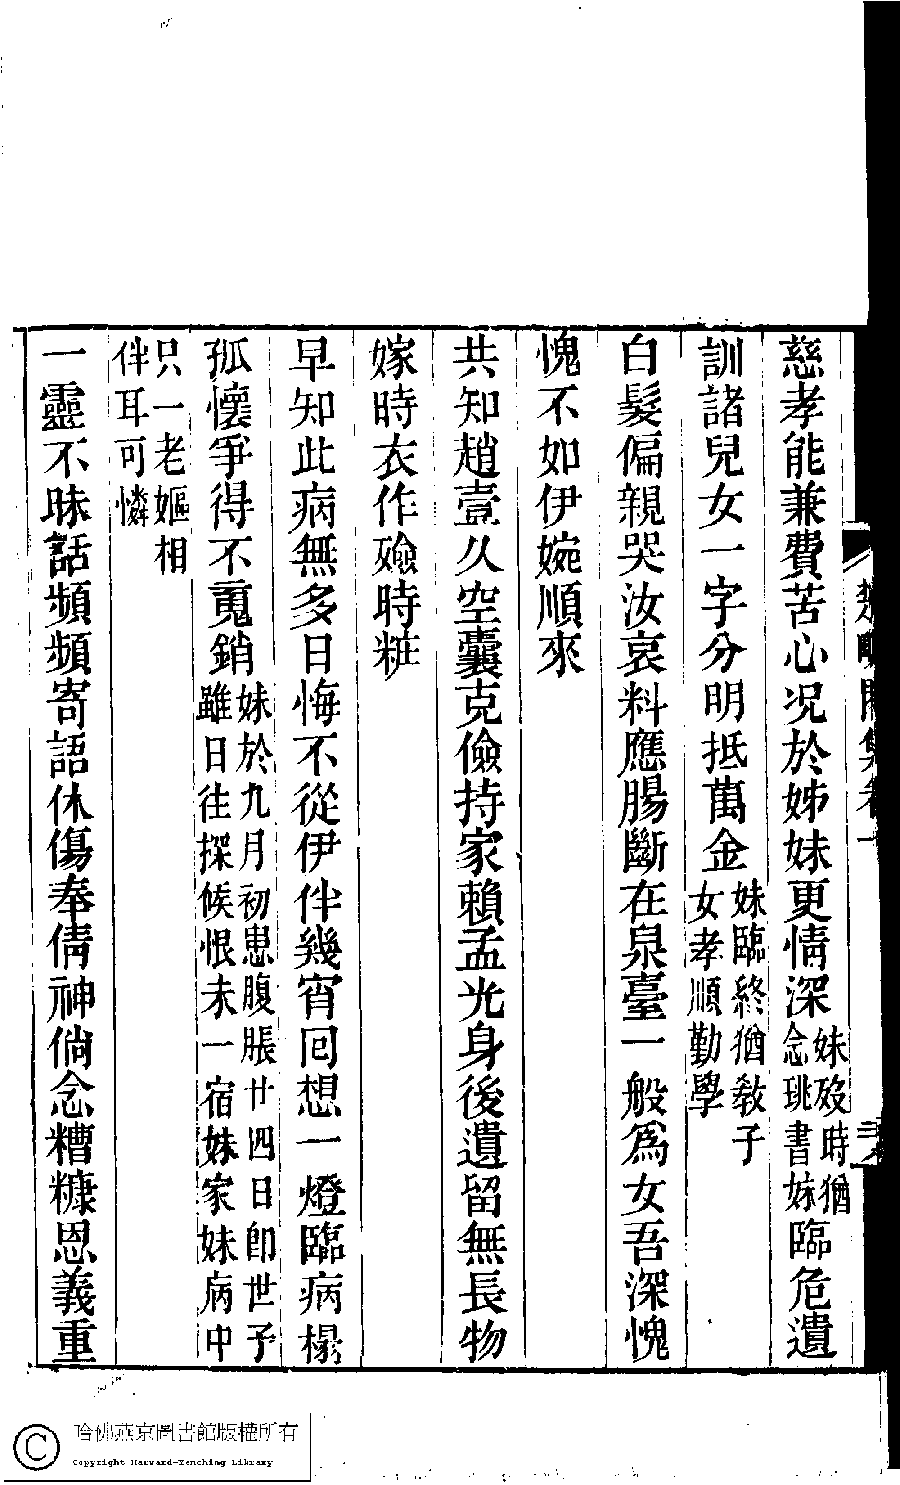 慈孝能兼費苦心况於姊妹更情深妹歿時猶念珧書妹臨危遺
訓諸兒女一字分明抵萬金妹臨終猶敎子女孝順勤學
白髮偏親哭汝哀料應腸斷在泉臺一般爲女吾深愧
愧不如伊婉順來
共知趙壹久空囊克儉持家賴孟光身後遺留無長物
嫁時衣作殮時粧
早知此病無多日悔不從伊伴幾宵回想一燈臨病榻
孤懷爭得不䰟銷妹於九月初患腹脹廿四日卽世予雖日往探候恨未一宿妹家妹病中
只一老嫗相伴耳可憐
一靈不昧話頻頻寄語休傷奉倩神倘念糟糠恩義重
哈佛燕京圖書館版權所有
Copyright Harvard-Yenching Library